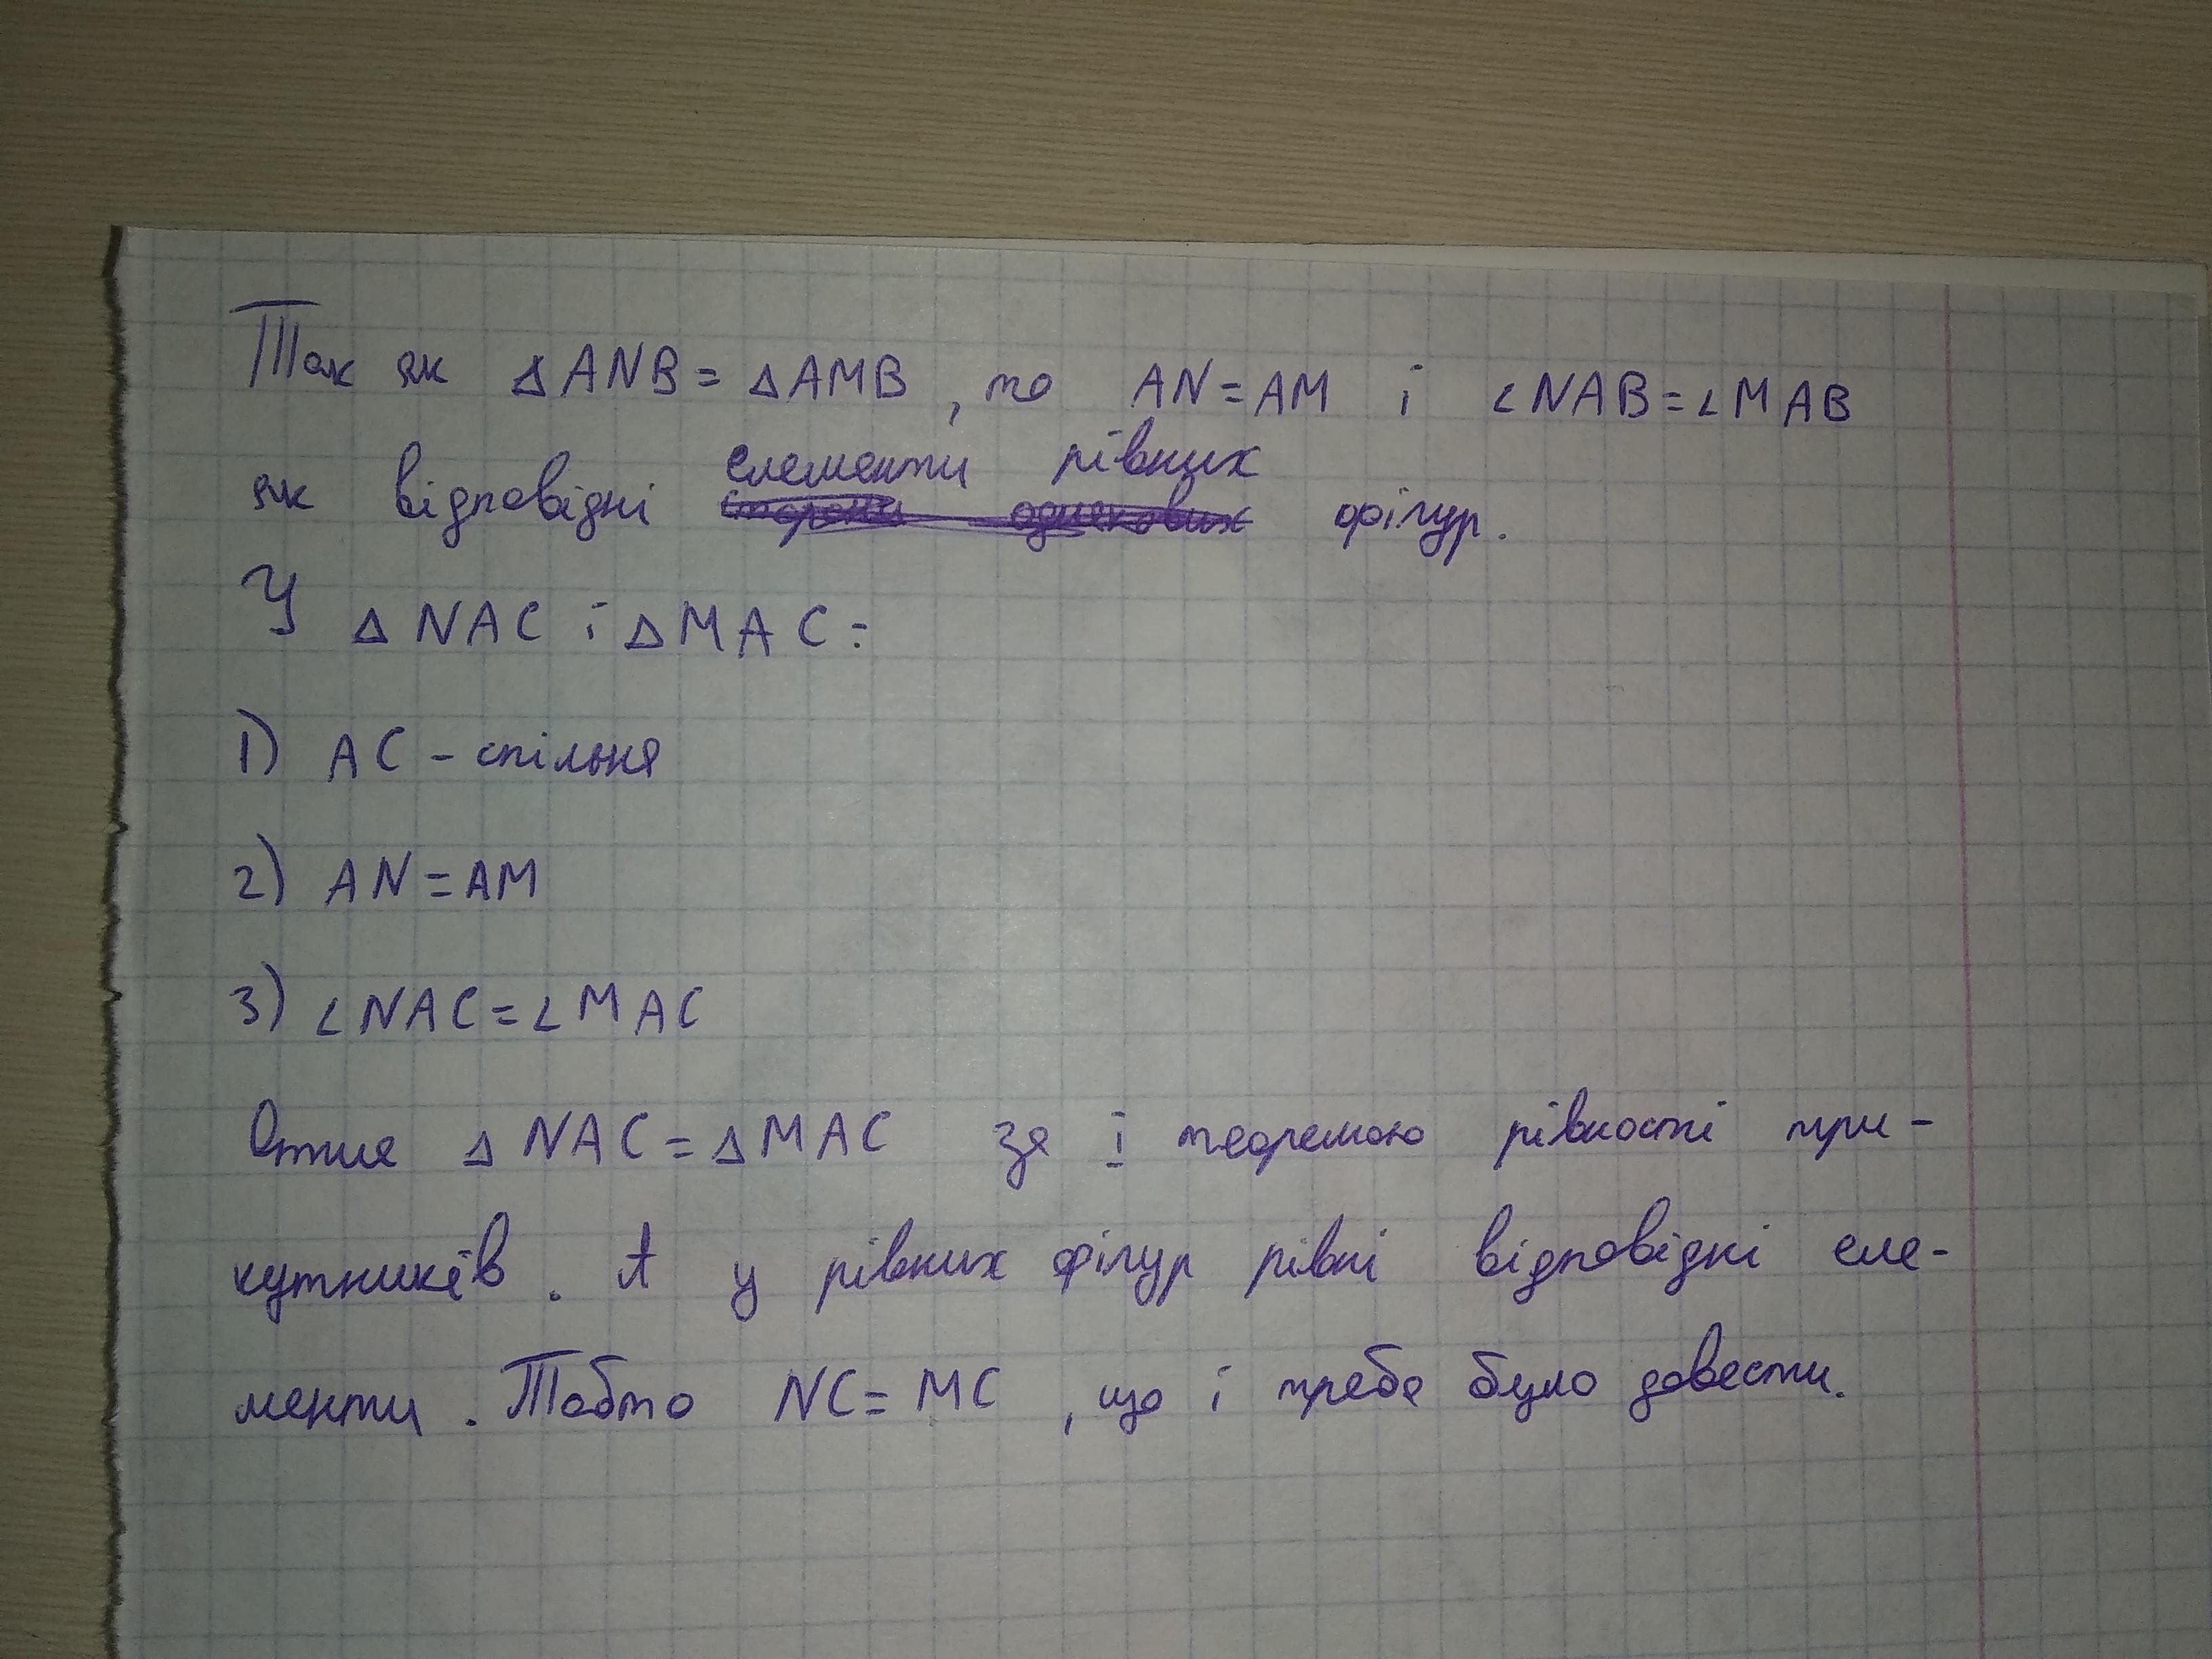 Так як ΔANB = ΔAMB, то AN = AM і ∠NAB = ∠MAB
як відповідні елементи рівних фігур.
сторони однакових
У ΔNAC і ΔMAC:
1) AC - спільна
2) AN = AM
3) ∠NAC = ∠MAC
Отже ΔNAC = ΔMAC за І теоремою рівності три-
кутників. А у рівних фігур рівні відповідні еле-
менти. Тобто NC = MC, що і треба було довести.